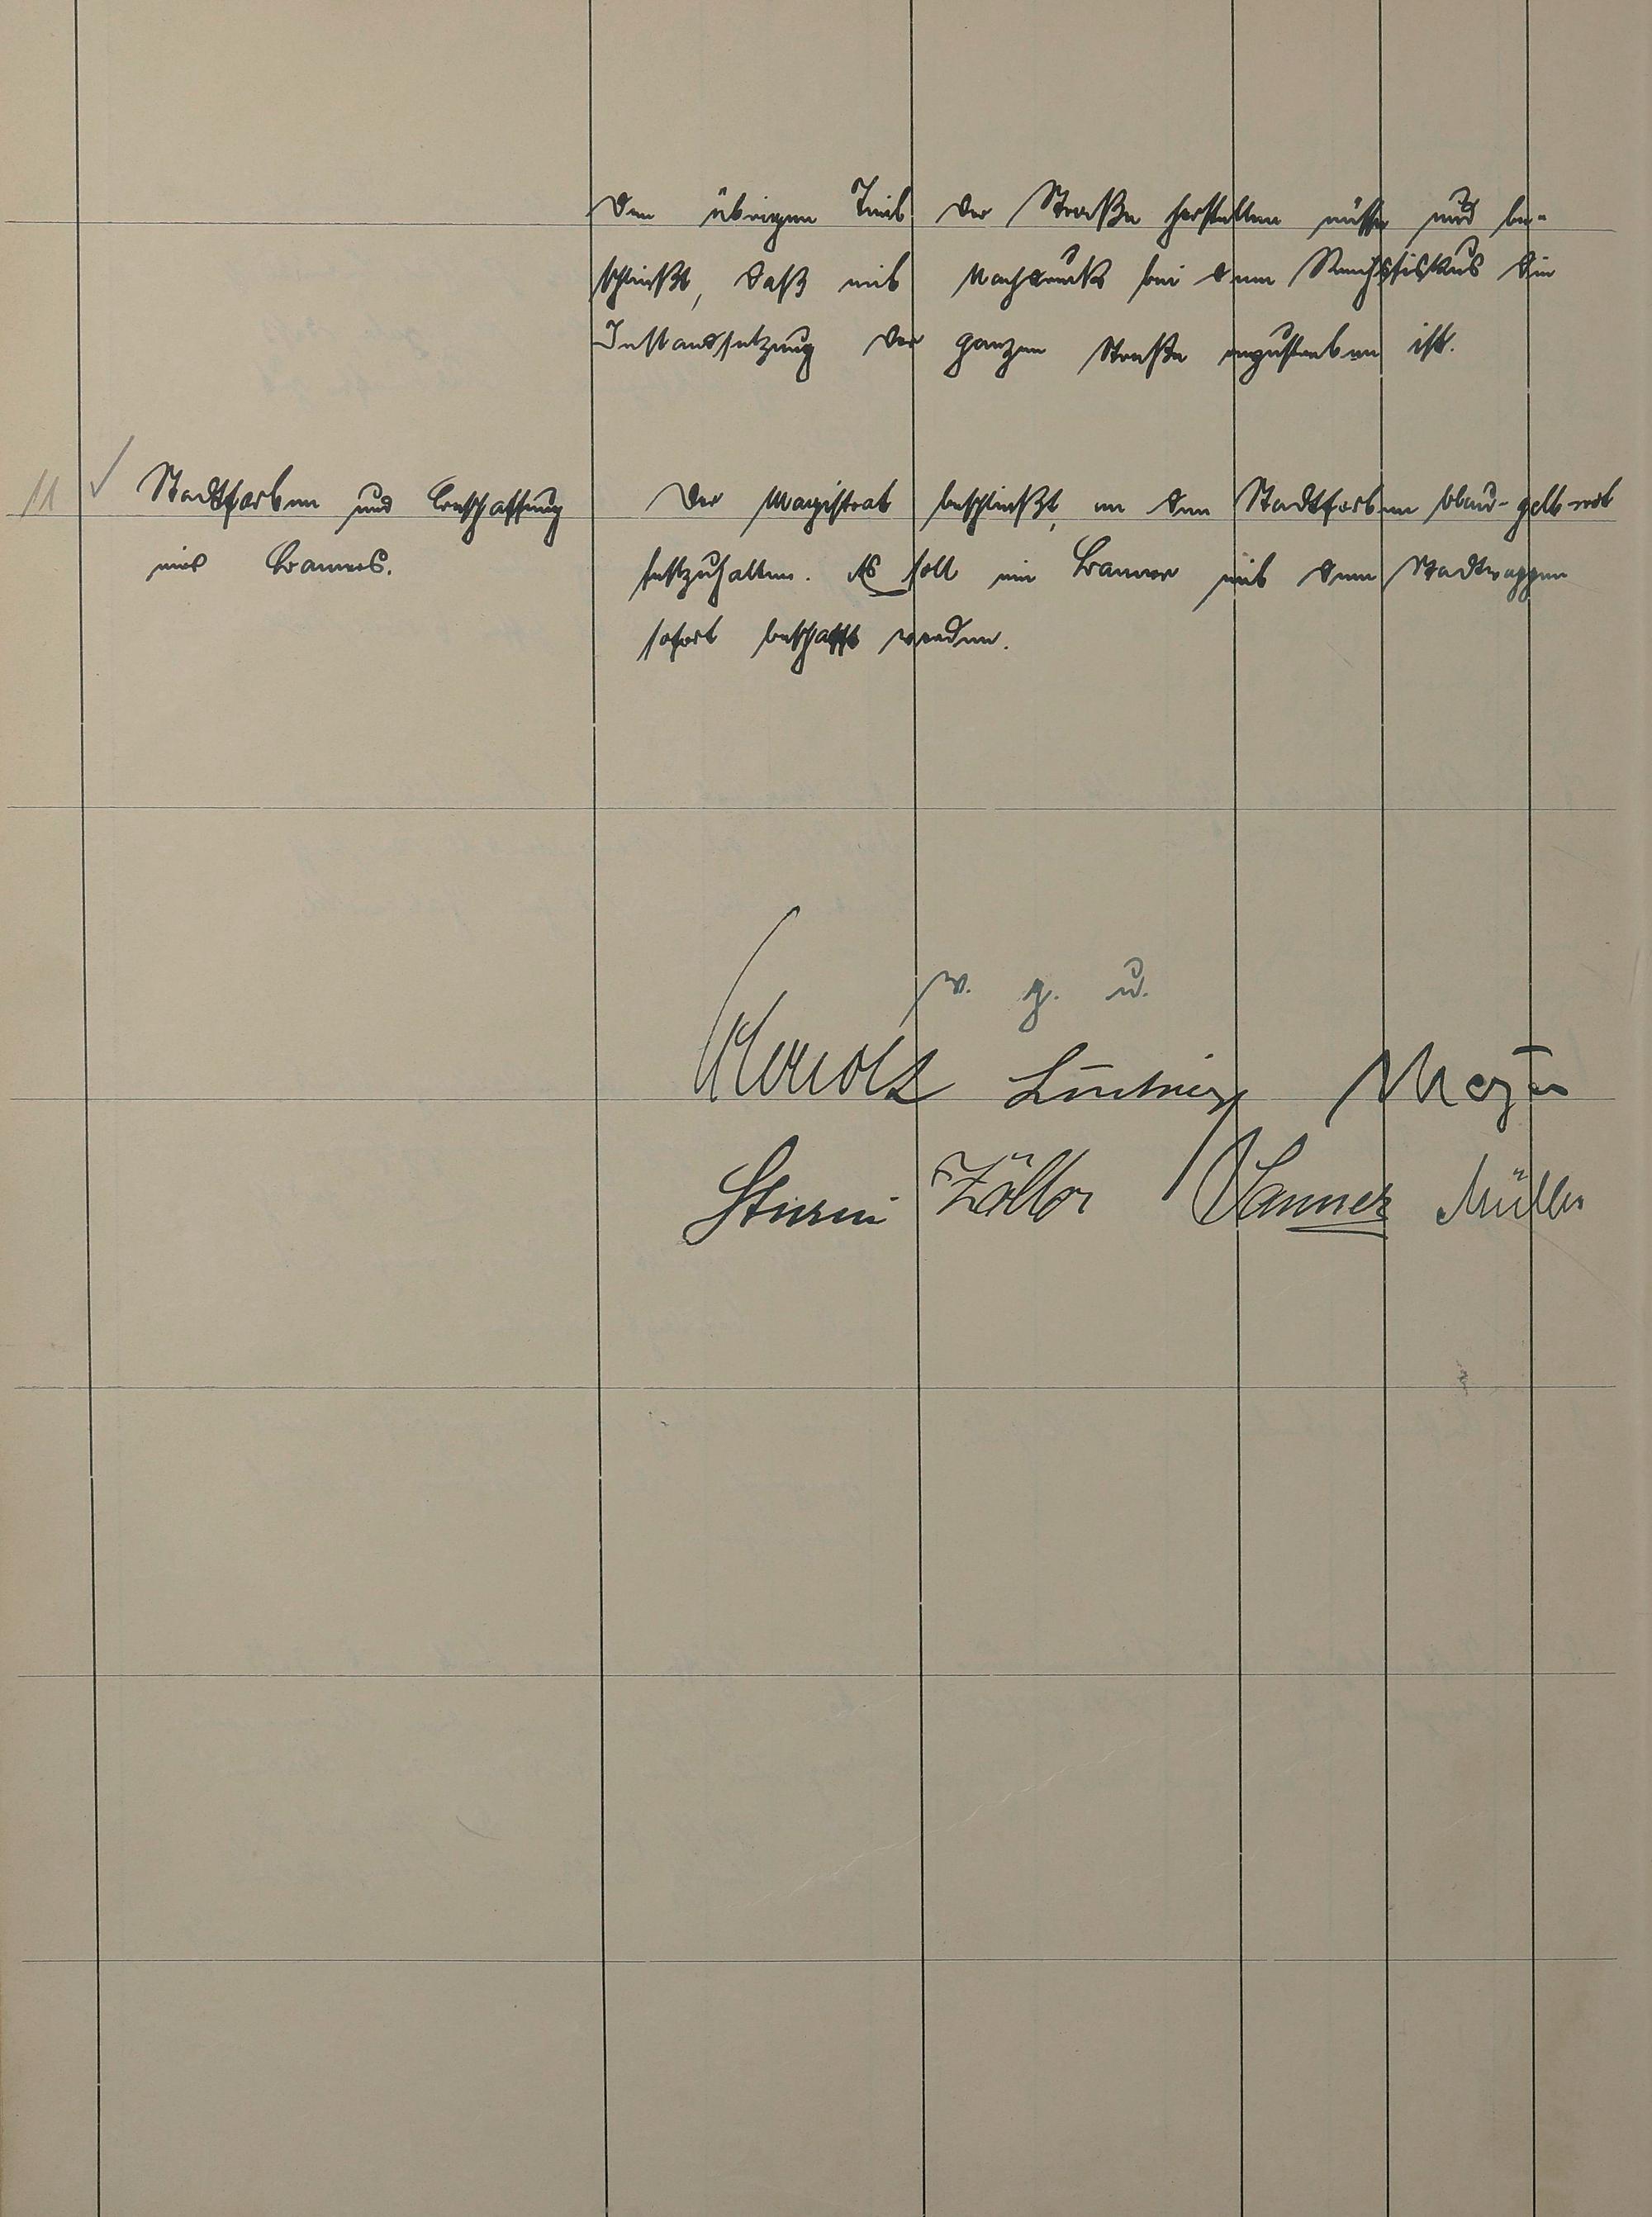 den übrigen Teil der Straße herstellen müsse und be-
schließt, daß mit Nachdruck bei dem Reichsfiskus die
Instandsetzung der ganzen Straße anzustreben ist.
11 ✓ Stadtfarben und Beschaffung
eines Banners.
Der Magistrat beschließt, an den Stadtfarben blau-gelb-rot
festzuhalten. Es soll ein Banner mit dem Stadtwappen
sofort beschafft werden.
v. g. u.
Meyer
Sturm Zöller Wanner Müller